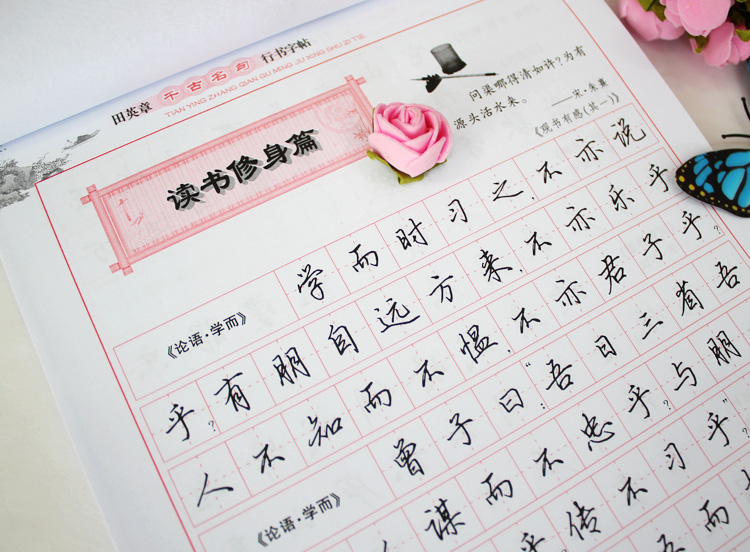 田英章 千古名句 行书字帖
TIAN YING ZHANG QIAN GU MING JU XING SHU ZI TIE
问渠哪得清如许?为有
源头活水来。
——宋·朱熹
《观书有感(其一)》
读书修身篇
《论语·学而》 学而时习之,不亦说
乎?有朋自远方来,不亦乐乎
人不知而不愠,不亦君子乎?
《论语·学而》 曾子曰:“吾日三省吾
谋而不忠乎?与朋
乎?传不习乎?”
而